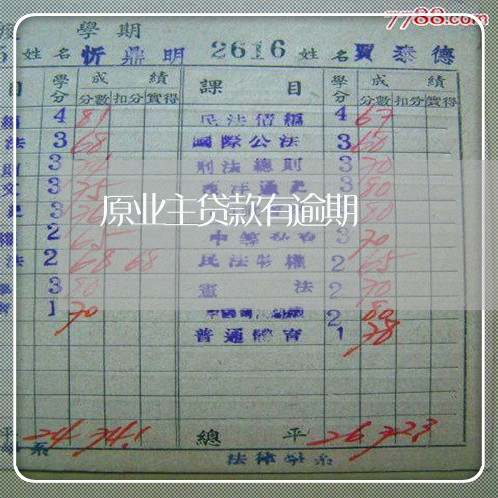 7788.com
學期
5 姓名 忻鼎明 2616 姓名 賈泰德
目 學分 成績 課目 學分 成績
分數 扣分 實得 分數 扣分 實得
4 81 民法債編 4 67
法 3 68 國際公法 3 60
3 刑法總則 3 70
3 75 3 80
原业主贷款有逾期
2 65 3 70
法 2 68 68 民法物權 2 65
3 80 憲法 2 70
1 70 2 80
普通體育 1 78
平 24 74.1 總平 26 72.3
系 法律學系